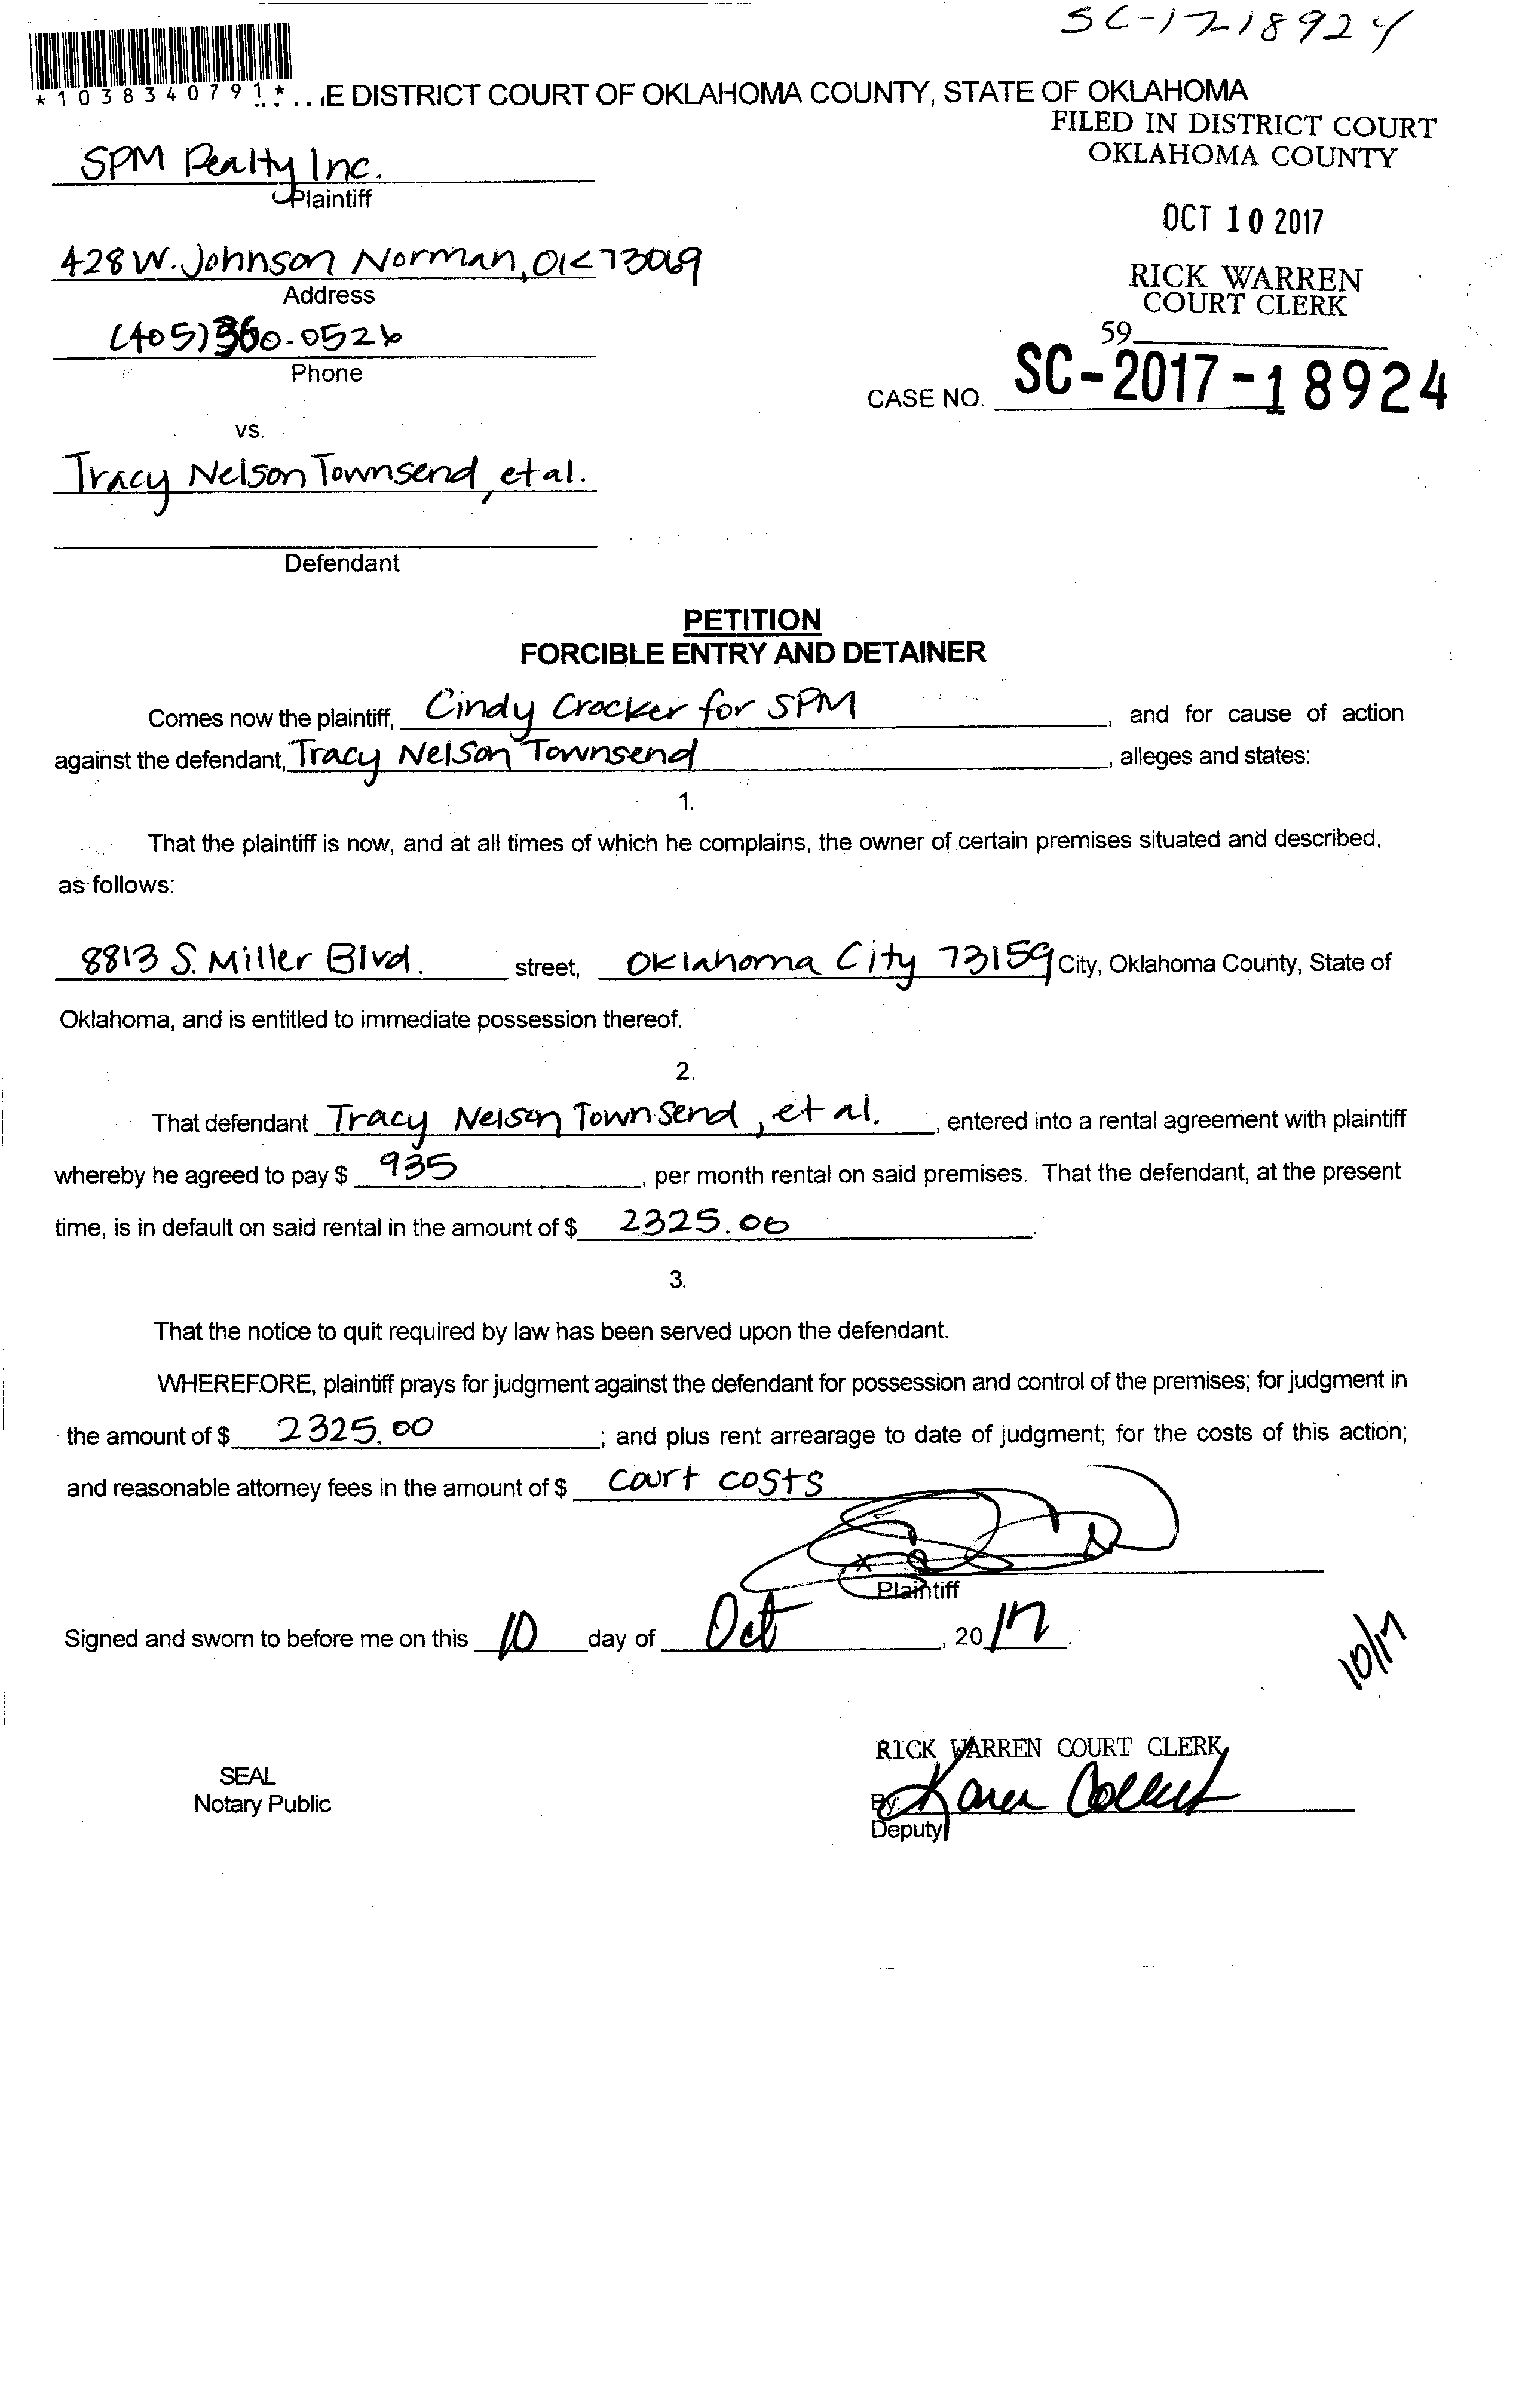 SC-17-18924
*1038340791*
E DISTRICT COURT OF OKLAHOMA COUNTY, STATE OF OKLAHOMA
FILED IN DISTRICT COURT
OKLAHOMA COUNTY
SPM Realty Inc.
Plaintiff
OCT 10 2017
428 W. Johnson Norman, OK 73069
Address
RICK WARREN
COURT CLERK
(405) 360-0526
59
Phone
CASE NO. SC-2017-18924
vs.
Tracy Nelson Townsend, et al.
Defendant
PETITION
FORCIBLE ENTRY AND DETAINER
Comes now the plaintiff, Cindy Crocker for SPM, and for cause of action
against the defendant, Tracy Nelson Townsend, alleges and states:
1.
That the plaintiff is now, and at all times of which he complains, the owner of certain premises situated and described,
as follows:
8813 S. Miller Blvd. street, Oklahoma City 73159 City, Oklahoma County, State of
Oklahoma, and is entitled to immediate possession thereof.
2.
That defendant Tracy Nelson Townsend, et al., entered into a rental agreement with plaintiff
whereby he agreed to pay $ 935, per month rental on said premises. That the defendant, at the present
time, is in default on said rental in the amount of $ 2325.00.
3.
That the notice to quit required by law has been served upon the defendant.
WHEREFORE, plaintiff prays for judgment against the defendant for possession and control of the premises; for judgment in
the amount of $ 2325.00; and plus rent arrearage to date of judgment; for the costs of this action;
and reasonable attorney fees in the amount of $ court costs
x
Plaintiff
Signed and sworn to before me on this 10 day of Oct, 20 17.
10/17
RICK WARREN COURT CLERK
SEAL
Notary Public
By: Karen
Deputy